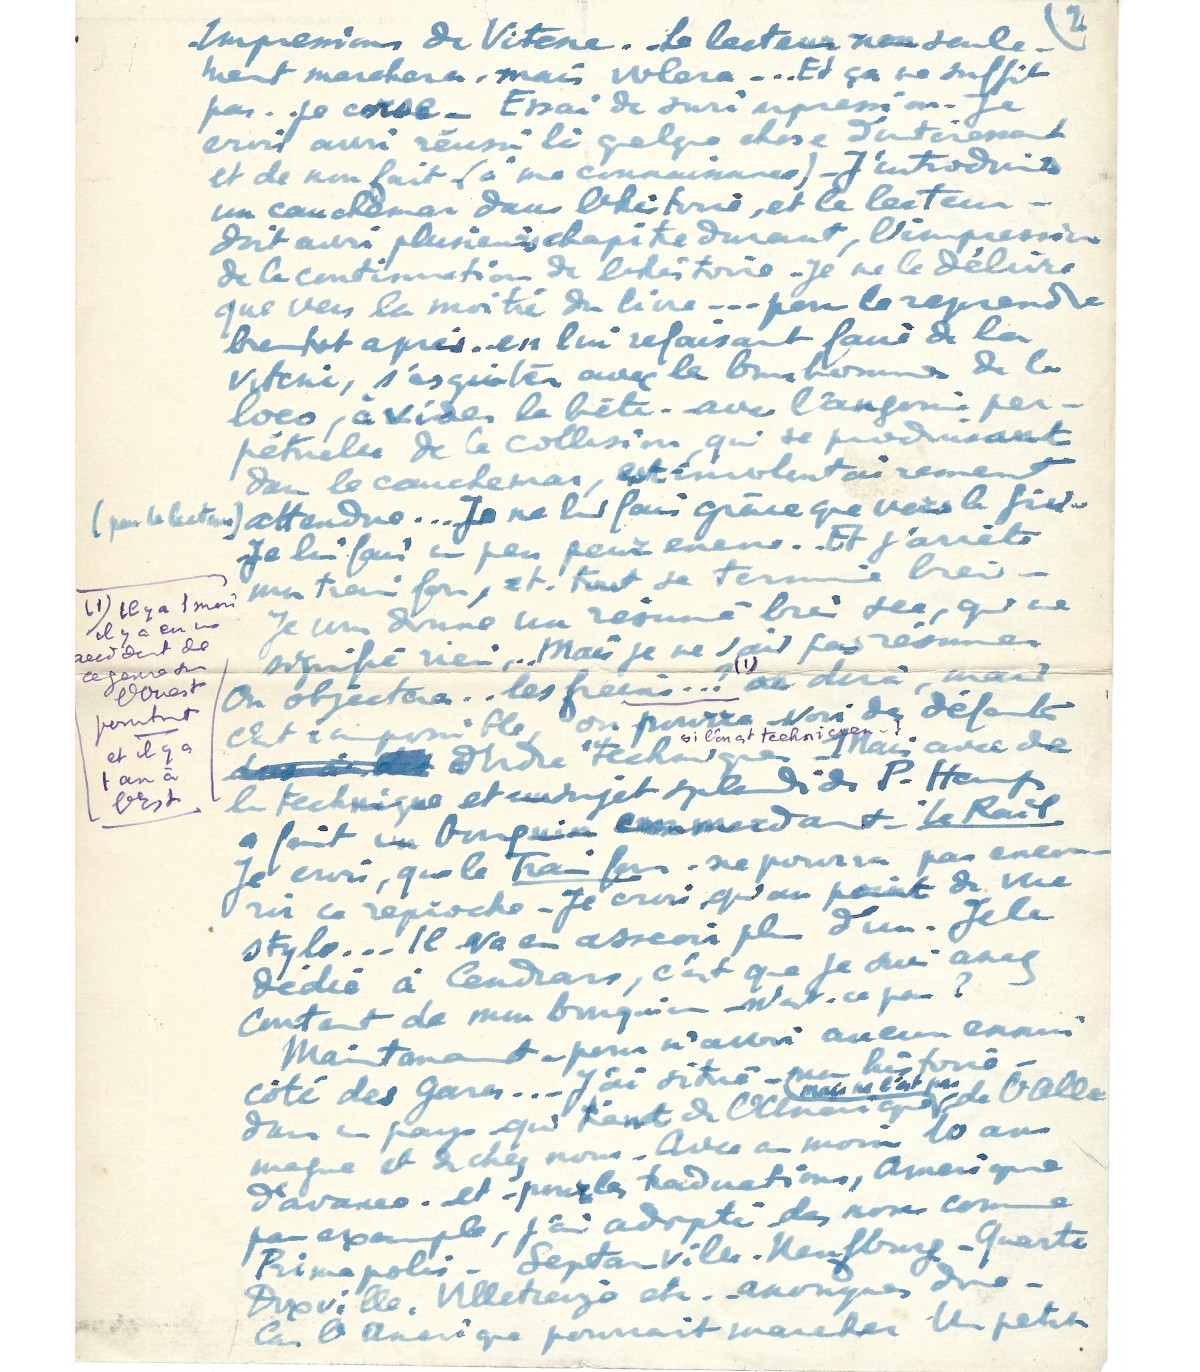 (2)
Impressions de Vitesse.. Le lecteur non seule-
ment marchera, mais volera ---. Et ça ne suffit
pas.. je corse - Essai de surimpression. Je
crois avoir réussi là quelque chose d'intéressant
et de non fait (à ma connaissance) - J'introduis
un cauchemar dans l'histoire, et le lecteur -
doit avoir plusieurs chapitre durant, l'impression
de la continuation de l'histoire - Je ne le délivre
que vers la moitié du livre --- pour le reprendre
bientot après.. en lui refaisant faire de la
vitesse, avec le bonhomme de la
loco, à vider la bête. avec l'angoisse per-
pétuelle de la collision, qui se produisant
dans le cauchemar, est involontairement
(pour le lecteur) attendue... Je ne lui fais grâce que vers la fin..
Je lui fais un peu peur encore.. Et j'arrête
mon train fou, et tout se termine bien -
Je vous donne un résumé bien sec, qui ne
signifie rien... Mais je ne sais pas résumer
On objectera.. les freins...(1) on dira, mais
c'est impossible, on pourra voir des défauts
si l'on est technicien - !
d'ordre technique - Mais avec de
la technique et un sujet splendide P. Hamp
a fait un bouquin emmerdant - Le Rail
Je crois, que le Train fou - ne pourra pas encou-
rir ce reproche - Je crois, qu'au point de vue
style... Il va en asseoir plus d'un. Je le
dédie à Cendrars, c'est que je suis assez
content de mon bouquin - n'est-ce pas ?
Maintenant - pour n'avoir aucun ennui
côté des Gares... J'ai situé - mon histoire -
mais ne l'est pas
dans un pays qui tient de l'Amérique, de l'Alle
magne et de chez nous. Avec au moins 10 ans
d'avance. et - pour les traductions, Amérique
par exemple, j'ai adopté des noms comme
Primapolis - Septanville - Neufbourg - Quarte
Dixville. Ulletreize etc. anonymes donc -
Car l'Amérique pourrait marcher Un petit
(1) Il y a 1 mois
il y a eu un
accident de
ce genre sur
l'Ouest
pourtant
et il y a
1 an à
l'Est